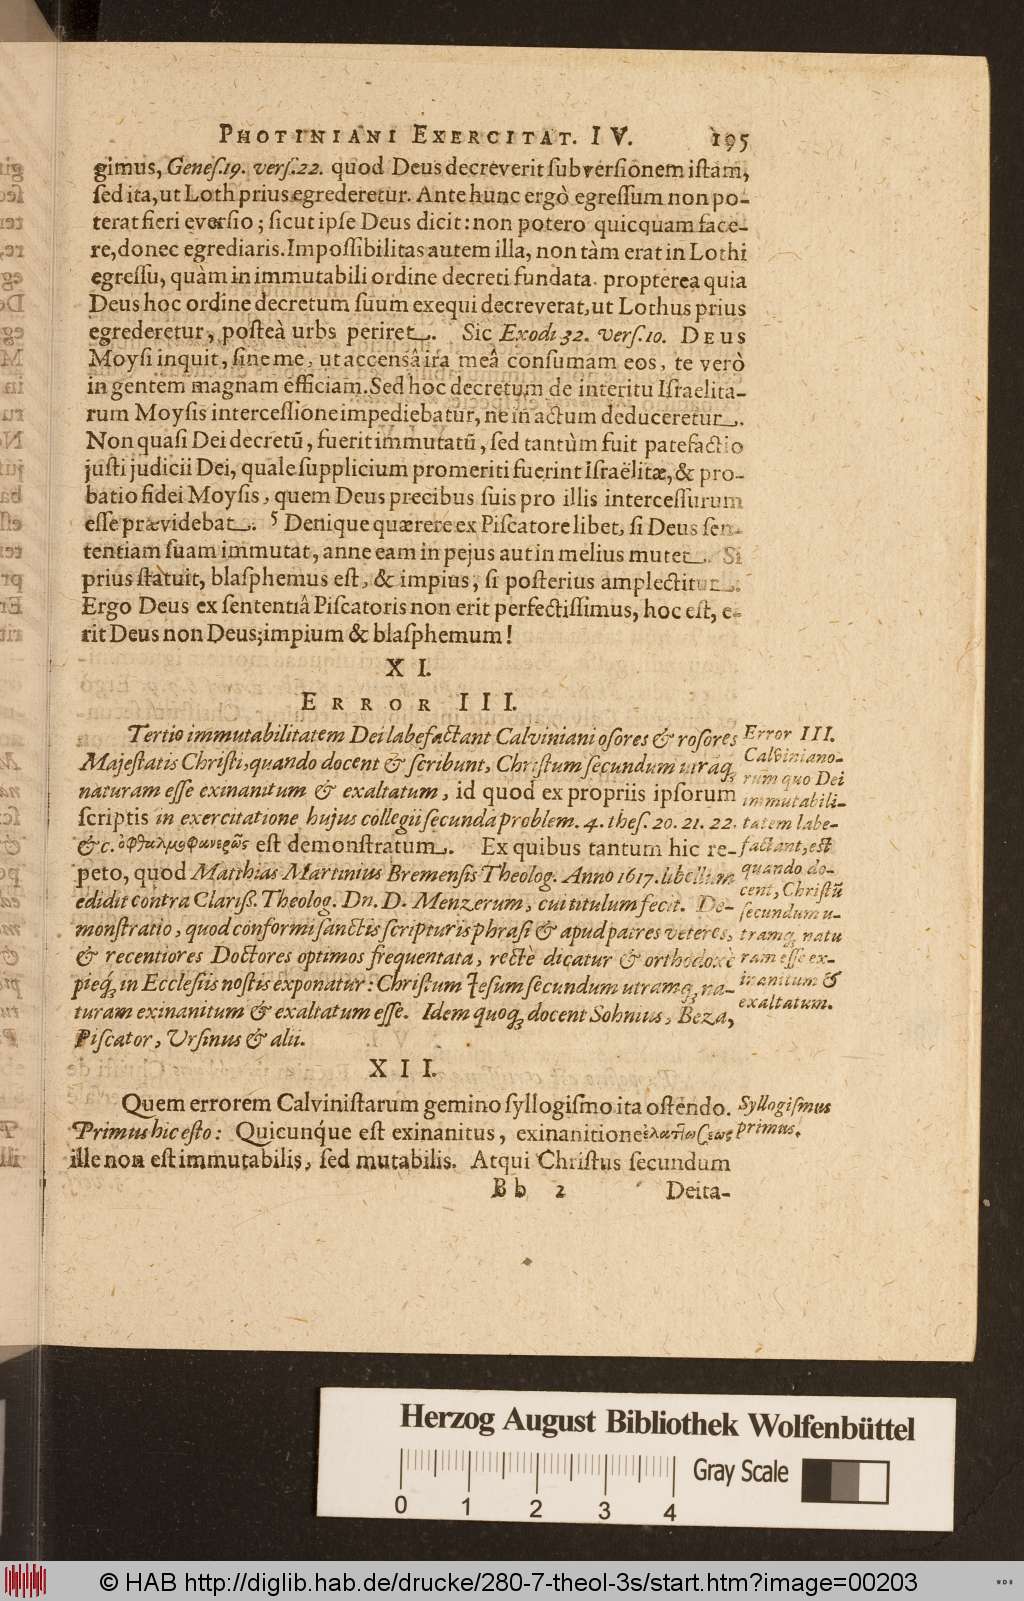 PHOTINIANI EXERCITAT. IV. 195
gimus, Geneſ.19. verſ.22. quod Deus decreverit ſubverſionem iſtam,
ſed ita, ut Loth prius egrederetur. Ante hunc ergò egreſſum non po-
terat fieri everſio; ſicut ipſe Deus dicit: non potero quicquam face-
re, donec egrediaris. Impoſſibilitas autem illa, non tàm erat in Lothi
egreſſu, quàm in immutabili ordine decreti fundata. propterea quia
Deus hoc ordine decretum ſuum exequi decreverat, ut Lothus prius
egrederetur, poſteà urbs periret. Sic Exodi 32. verſ.10. DEUS
Moyſi inquit, ſine me, ut accensâ irâ meâ conſumam eos, te verò
in gentem magnam efficiam. Sed hoc decretum de interitu Iſraelita-
rum Moyſis interceſſione impediebatur, ne in actum deduceretur.
Non quaſi Dei decretũ, fuerit immutatũ, ſed tantùm fuit patefactio
juſti judicii Dei, quale ſupplicium promeriti fuerint Iſraëlitæ, & pro-
batio fidei Moyſis, quem Deus precibus ſuis pro illis interceſſurum
eſſe prævidebat. 5 Denique quærere ex Piſcatore libet, ſi Deus ſen-
tentiam ſuam immutat, anne eam in pejus aut in melius mutet. Si
prius ſtatuit, blaſphemus eſt, & impius, ſi poſterius amplectitur.
Ergo Deus ex ſententiâ Piſcatoris non erit perfectiſſimus, hoc eſt, e-
rit Deus non Deus; impium & blaſphemum!
XI.
ERROR III.
Tertio immutabilitatem Dei labefactant Calviniani oſores & roſores
Majeſtatis Chriſti, quando docent & ſcribunt, Chriſtum ſecundum utraq;
naturam eſſe exinanitum & exaltatum, id quod ex propriis ipſorum
ſcriptis in exercitatione hujus collegii ſecunda problem. 4. theſ. 20. 21. 22.
&c. ὀφθαλμοφανερῶς eſt demonſtratum. Ex quibus tantum hic re-
peto, quod Matthias Martinius Bremenſis Theolog. Anno 1617. libellum
edidit contra Clariſſ. Theolog. Dn. D. Menzerum, cui titulum fecit. De-
monſtratio, quod conformi ſanctis ſcripturis phraſi & apud patres veteres,
& recentiores Doctores optimos frequentata, rectè dicatur & orthodoxè
pieq́; in Eccleſiis noſtis exponatur: Chriſtum Jeſum ſecundum utramq; na-
turam exinanitum & exaltatum eſſe. Idem quoq; docent Sohnius, Beza,
Piſcator, Urſinus & alii.
Error III.
Calviniano-
rum quo Dei
immutabili-
tatem labe-
factant, eſt
quando do-
cent, Chriſtũ
ſecundum u-
tramq; natu
ram eſſe ex-
inanitum &
exaltatum.
XII.
Quem errorem Calviniſtarum gemino ſyllogiſmo ita oſtendo.
Primus hic eſto: Quicunq́ue eſt exinanitus, exinanitione ἐλαττώσεως
ille non eſt immutabilis, ſed mutabilis. Atqui Chriſtus ſecundum
Syllogiſmus
primus.
Bb 2 Deita-
Herzog August Bibliothek Wolfenbüttel
Gray Scale
0 1 2 3 4
© HAB http://diglib.hab.de/drucke/280-7-theol-3s/start.htm?image=00203